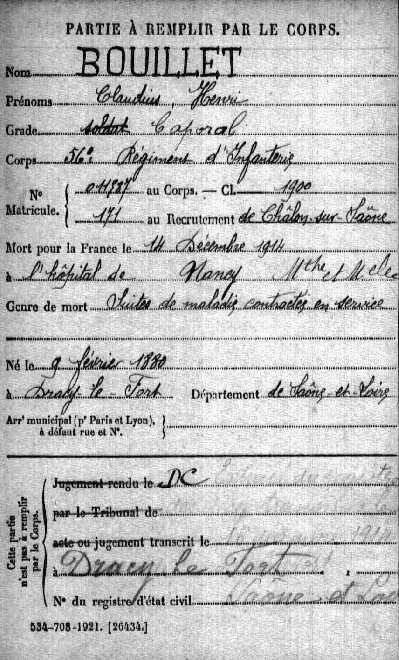 PARTIE À REMPLIR PAR LE CORPS.
Nom BOUILLET
Prénoms Claudius, Henri
Grade soldat Caporal
Corps 56e Régiment d'Infanterie
No Matricule. au Corps. — Cl. 1900
171 au Recrutement de Châlon-sur-Saône
Mort pour la France le 14 Décembre 1914
à l'hôpital de Nancy Mthe et Melle
Genre de mort Suites de maladie contractée en service
Né le 9 février 1880
à Dracy-le-Fort Département de Saône-et-Loire
Arrt municipal (pr Paris et Lyon), à défaut rue et No.
Cette partie n'est pas à remplir par le Corps.
Jugement rendu le DC
par le Tribunal de
acte ou jugement transcrit le
à Dracy le Fort
No du registre d'état civil Saône et Loire
534-708-1921. [26434.]